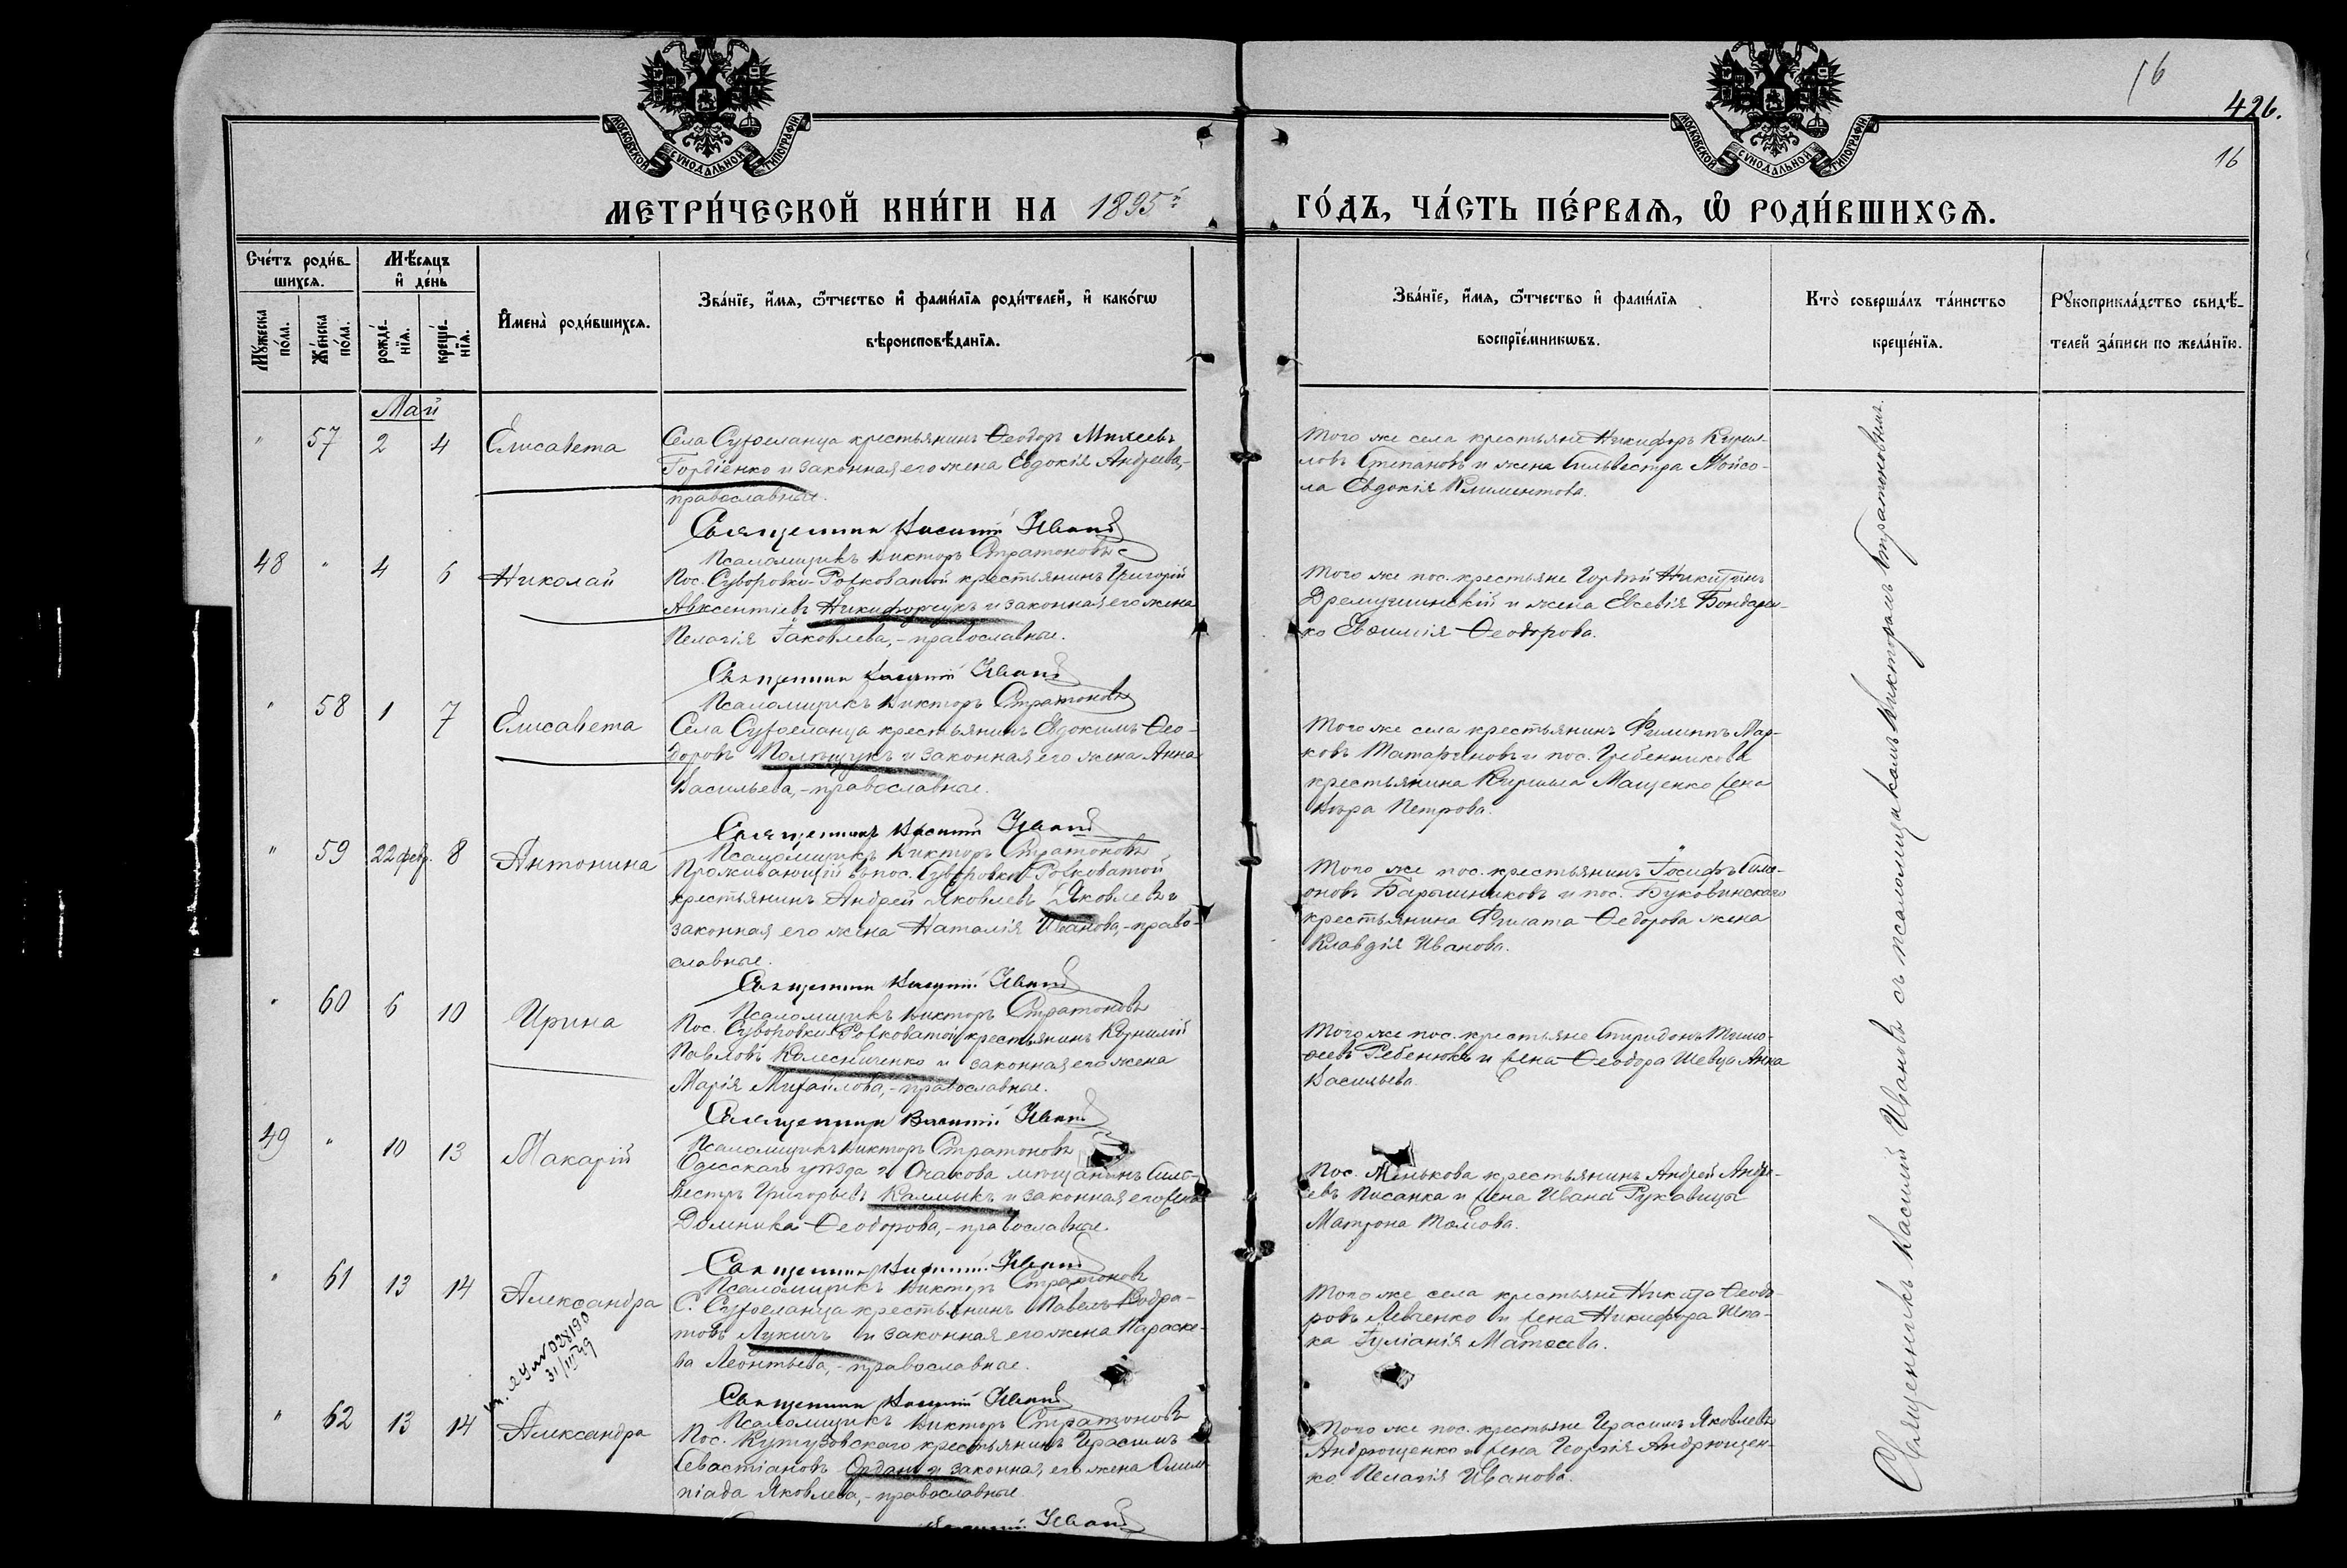 16
426.
16
МОСКОВСКОЙ СѴНОДАЛЬНОЙ ТИПОГРАФІИ
МОСКОВСКОЙ СѴНОДАЛЬНОЙ ТИПОГРАФІИ
МЕТРИ́ЧЕСКОЙ КНИ́ГИ НА 1895й
ГО́ДЪ, ЧА́СТЬ ПЕ́РВАѦ, Ѽ РОДИ́ВШИХСѦ.
Сче́тъ роди́в-
шихсѧ.
Мѣ́сѧцъ
и҆ де́нь
Мꙋ́жеска
по́ла.
Же́нска
по́ла.
рожде́-
нїѧ.
креще́-
нїѧ.
И҆мена̀ роди́вшихсѧ.
Зва́нїе, и҆́мѧ, ѻ҆́тчество и҆ фами́лїѧ роди́телей, и҆ како́гѡ
вѣроисповѣ́данїѧ.
Зва́нїе, и҆́мѧ, ѻ҆́тчество и҆ фами́лїѧ
воспрїе́мникѡвъ.
Кто̀ соверша́лъ та́инство
креще́нїѧ.
Рꙋкоприкла́дство свидѣ́-
телей за́писи по жела́нїю.
Май
" 57 2 4 Елисавета
Села Сухоеланца крестьянинъ Ѳеодоръ Михеевъ
Гордіенко и законная его жена Евдокія Андреева,-
православные.
Священникъ Василій Ивановъ
Псаломщикъ Викторъ Стратоновъ
Того же села крестьяне Никифоръ Кирил-
ловъ Степановъ и жена Сильвестра Мойсо-
ла Евдокія Климентова.
48 " 4 6 Николай
Пос. Суворовки-Рахковатой крестьянинъ Григорій
Авксентіевъ Никифорчукъ и законная его жена
Пелагія Іаковлева,-православные.
Священникъ Василій Ивановъ
Псаломщикъ Викторъ Стратоновъ
Того же пос. крестьяне Гордѣй Никитинъ
и жена Евсевія Бондарен-
ко Евфимія Ѳеодорова.
" 58 1 7 Елисавета
Села Сухоеланца крестьянинъ Евдокимъ Ѳео-
доровъ Полищукъ и законная его жена Анна
Васильева,-православные.
Священникъ Василій Ивановъ
Псаломщикъ Викторъ Стратоновъ
Того же села крестьянинъ Филиппъ Мар-
ковъ и пос. Гребенникова
крестьянина Кирилла Мащенко жена
Вѣра Петрова.
" 59 22 февр. 8 Антонина
Проживающій въ пос. Суворовкѣ-Рахковатой
крестьянинъ Андрей Яковлевъ Яковлевъ и
законная его жена Наталія Иванова,-право-
славные.
Священникъ Василій Ивановъ
Псаломщикъ Викторъ Стратоновъ
Того же пос. крестьянинъ Іосифъ Сим-
оновъ Барышниковъ и пос. Буковинскаго
крестьянина Филата Ѳедорова жена
Клавдія Иванова.
" 60 6 10 Ирина
Пос. Суворовки-Рахковатой крестьянинъ Корнилій
Павловъ Колесниченко и законная его жена
Марія Михайлова,-православные.
Священникъ Василій Ивановъ
Псаломщикъ Викторъ Стратоновъ
Того же пос. крестьяне Спиридонъ Тимо-
ѳеевъ Ребенюкъ и жена Ѳеодора Шевца Анна
Васильева.
49 " 10 13 Макарій
Одесскаго уѣзда г. Очакова мѣщанинъ Силь-
вестръ Григорьевъ Калмыкъ и законная его жена
Домника Ѳеодорова,-православные.
Священникъ Василій Ивановъ
Псаломщикъ Викторъ Стратоновъ
Пос. Менькова крестьянинъ Андрей Андре-
евъ Писанка и жена Ивана Рукавицы
Матрона Томова.
" 61 13 14 Александра
С. Сухоеланца крестьянинъ Павелъ Кодра-
товъ Лукичъ и законная его жена Параске-
ва Леонтьева,-православные.
Священникъ Василій Ивановъ
Псаломщикъ Викторъ Стратоновъ
Того же села крестьяне Никита Ѳеодо-
ровъ Левченко и жена Никифора Шпа-
ка Іуліанія Матѳеева.
№ 038190
31/III 49
" 62 13 14 Александра
Пос. Кутузовскаго крестьянинъ Герасимъ
Севастіановъ Орданъ и законная его жена Олим-
піада Яковлева,-православные.
Ивановъ
Того же пос. крестьяне Герасимъ Яковлевъ
Андрющенко и жена Георгія Андрющен-
ко Пелагія Иванова.
Священникъ Василій Ивановъ съ псаломщикомъ Викторомъ Стратоновымъ.